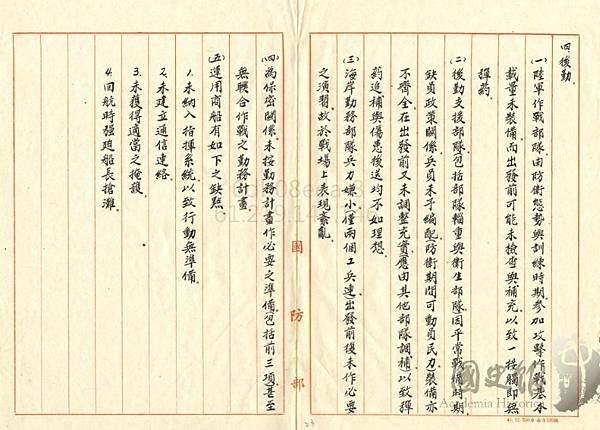 四、後勤.
㈠陸軍作戰部隊由防衛態勢與訓練時期參加攻擊作戰基本
載量未裝備而出發前可能未檢查與補充以致一接觸即無
彈葯.
㈡後勤支援部隊包括部隊輜重與衛生部隊因平常戰備時期
缺員政策關係兵員未予編配防衛期間可動員民力裝備亦
不齊全在出發前又未調整充實應由其他部隊調補以致彈
葯追補與傷患後送均不如理想.
㈢海岸勤務部隊兵力嫌小僅兩個工兵連出發前後未作必要
之演習故於戰場上表現紊亂
㈣為保密關係未按勤務計畫作必要之準備包括前三項甚至
無聯合作戰之勤務計畫.
㈤運用商船有如下之缺點
1.未納入指揮系統以致行動無準備.
2.未建立通信連絡.
3.未獲得適當之掩護
4.回航時强迫船長搶灘.
國防部
23
國史館
Academia Historica